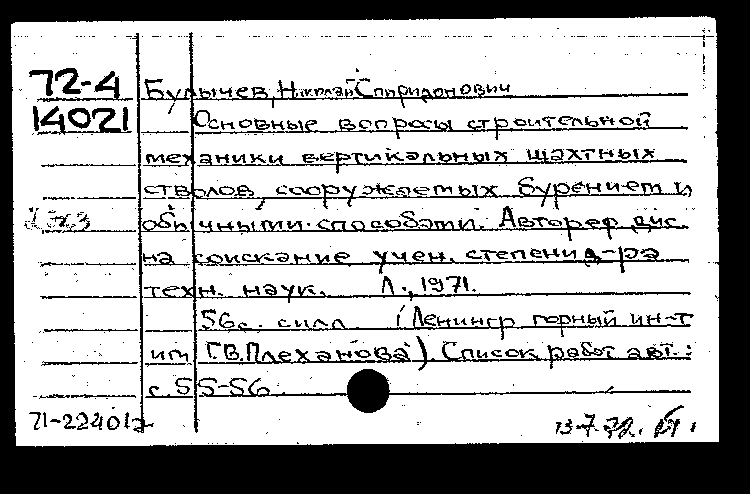 72-4 Булычев, Николай Спиридонович
14021 Основные вопросы строительной
механики вертикальных шахтных
стволов, сооружаемых бурением и
обычными способами. Автореф. дис.
на соискание учен. степени д-ра
техн. наук. Л., 1971.
56 с. с илл. (Ленингр горный ин-т
им Г.В. Плеханова). Список работ авт.:
с. 55-56.
71-22401 13-7.72.